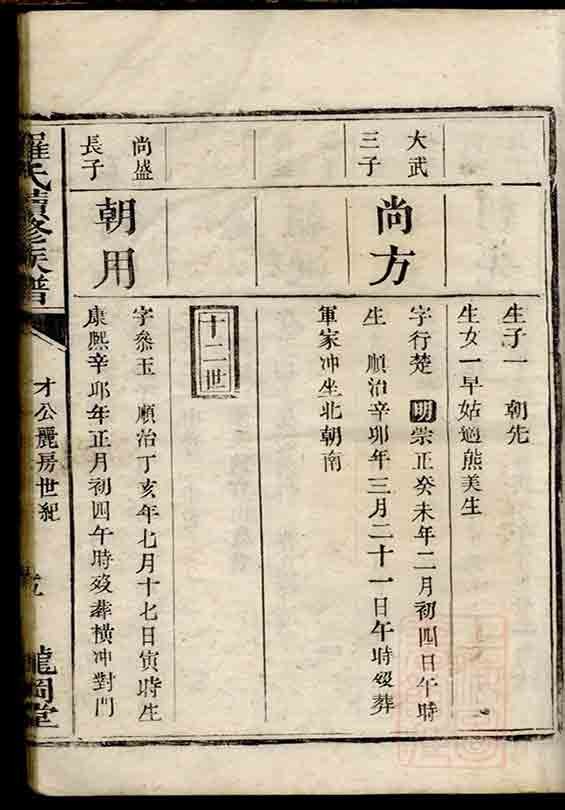 生子一 朝先
生女一早姑適熊美生
大武
三子
尚方
字行楚 明崇正癸未年二月初四日午時
生 順治辛卯年三月二十一日午時歿葬
軍家冲坐北朝南
十二世
尚盛
長子
朝用
字叅玉 順治丁亥年七月十七日寅時生
康熙辛卯年正月初四午時歿葬橫冲對門
羅氏續修族譜
才公麗房世紀
龍岡堂